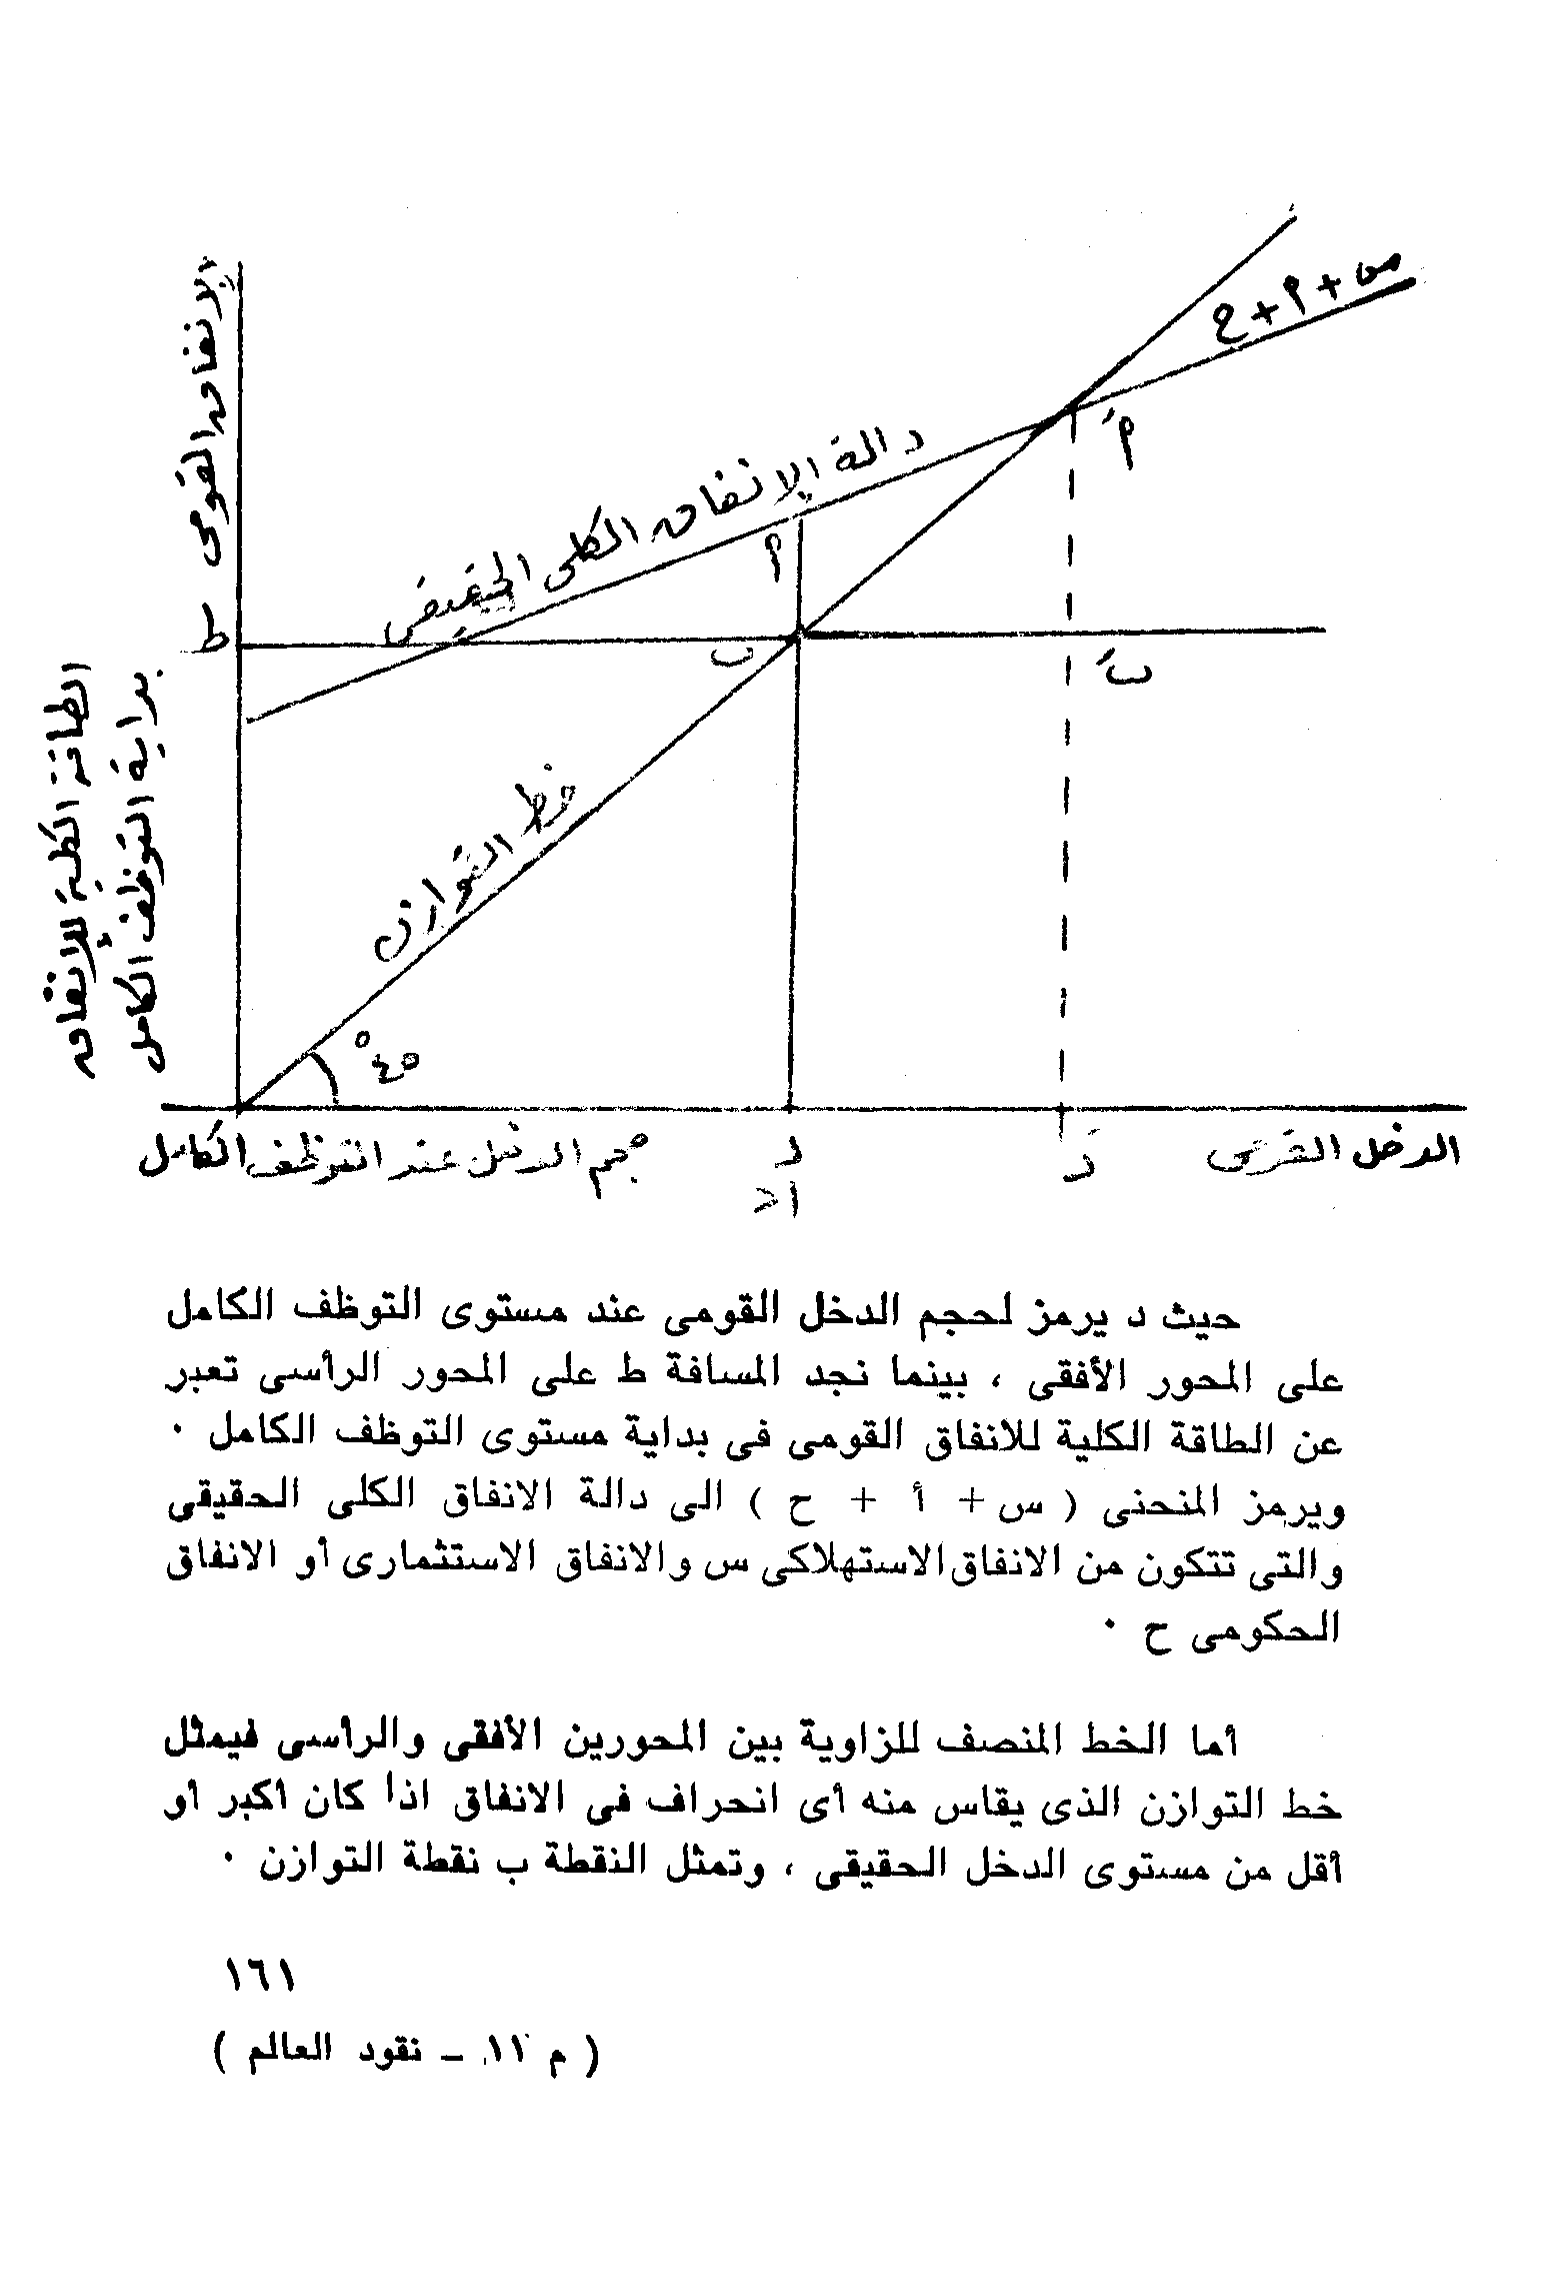 الإنفاق القومى
س + أ + ح
دالة الإنفاق الكلى الحقيقى
أَ
أ
ط
ب
بَ
الطاقة الكلية للإنفاق
بداية التوظف الكامل
خط التوازن
٤٥°
حجم الدخل عند التوظف الكامل
د
دَ
الدخل القومى
حيث د يرمز لحجم الدخل القومى عند مستوى التوظف الكامل
على المحور الأفقى ، بينما نجد المسافة ط على المحور الرأسى تعبر
عن الطاقة الكلية للانفاق القومى فى بداية مستوى التوظف الكامل ٠
ويرمز المنحنى ( س + أ + ح ) الى دالة الانفاق الكلى الحقيقى
والتى تتكون من الانفاق الاستهلاكى س والانفاق الاستثمارى أو الانفاق
الحكومى ح ٠
أما الخط المنصف للزاوية بين المحورين الأفقى والرأسى فيمثل
خط التوازن الذى يقاس منه أى انحراف فى الانفاق اذا كان أكبر أو
أقل من مستوى الدخل الحقيقى ، وتمثل النقطة ب نقطة التوازن ٠
١٦١
( م ١١ ـ نقود العالم )